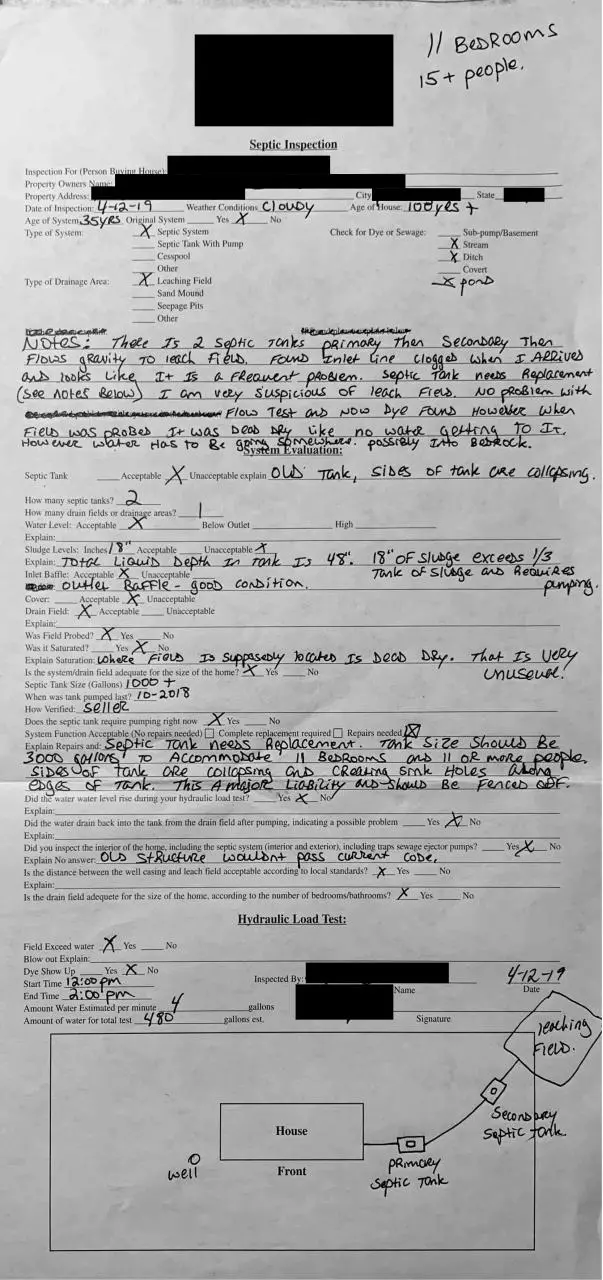 11 BEDROOMS
15+ people.
Septic Inspection
Inspection For (Person Buying House):
Property Owners Name:
Property Address: City State
Date of Inspection: 4-12-19 Weather Conditions Cloudy Age of House: 100 yrs +
Age of System: 35 YRS Original System ___ Yes X No
Type of System: X Septic System Check for Dye or Sewage: ___ Sub-pump/Basement
___ Septic Tank With Pump X Stream
___ Cesspool X Ditch
___ Other ___ Covert
Type of Drainage Area: X Leaching Field X pond
___ Sand Mound
___ Seepage Pits
___ Other
NOTES: There Is 2 Septic Tanks primary Then Secondary Then
Flows gravity To leach Field. Found Inlet line clogged when I ARRived
and looks like It Is a Frequent problem. Septic Tank needs Replacement
(See notes Below) I am very suspicious of leach Field. No problem with
Flow Test and Now Dye Found However when
Field was probed It was Dead Dry like no water getting to It.
However water Has to Be going somewhere. possibly Into Bedrock.
System Evaluation:
Septic Tank ___ Acceptable X Unacceptable explain OLD Tank, Sides of tank are collapsing.
How many septic tanks? 2
How many drain fields or drainage areas? 1
Water Level: Acceptable X Below Outlet ___ High ___
Explain:
Sludge Levels: Inches 18" Acceptable ___ Unacceptable X
Explain: Total Liquid Depth In Tank Is 48". 18" of Sludge exceeds 1/3
Inlet Baffle: Acceptable X Unacceptable ___ Tank of Sludge and Requires
Outlet Baffle - good condition. pumping.
Cover: ___ Acceptable X Unacceptable
Drain Field: X Acceptable ___ Unacceptable
Explain:
Was Field Probed? X Yes ___ No
Was it Saturated? ___ Yes X No
Explain Saturation: Where Field Is Supposedly located Is Dead Dry. That Is Very
Is the system/drain field adequate for the size of the home? X Yes ___ No Unusual!
Septic Tank Size (Gallons) 1000 +
When was tank pumped last? 10-2018
How Verified: Seller
Does the septic tank require pumping right now X Yes ___ No
System Function Acceptable (No repairs needed) ☐ Complete replacement required ☐ Repairs needed ☒
Explain Repairs and: Septic Tank needs Replacement. Tank Size Should Be
3000 gallons to Accommodate 11 Bedrooms and 11 or more people.
Sides of Tank are collapsing and Creating Sink Holes Along
edges of Tank. This A major Liability and Should Be Fenced off.
Did the water water level rise during your hydraulic load test? ___ Yes X No
Explain:
Did the water drain back into the tank from the drain field after pumping, indicating a possible problem ___ Yes X No
Explain:
Did you inspect the interior of the home, including the septic system (interior and exterior), including traps sewage ejector pumps? ___ Yes X No
Explain No answer: Old Structure wouldnt pass current code.
Is the distance between the well casing and leach field acceptable according to local standards? X Yes ___ No
Explain:
Is the drain field adequete for the size of the home, according to the number of bedrooms/bathrooms? X Yes ___ No
Hydraulic Load Test:
Field Exceed water X Yes ___ No
Blow out Explain:
Dye Show Up ___ Yes X No
Start Time 12:00 pm Inspected By: 4-12-19
End Time 2:00 pm Name Date
Amount Water Estimated per minute 4 gallons
Amount of water for total test 480 gallons est. Signature
leaching
Field.
Secondary
Septic Tank.
House
Front
well
primary
Septic Tank